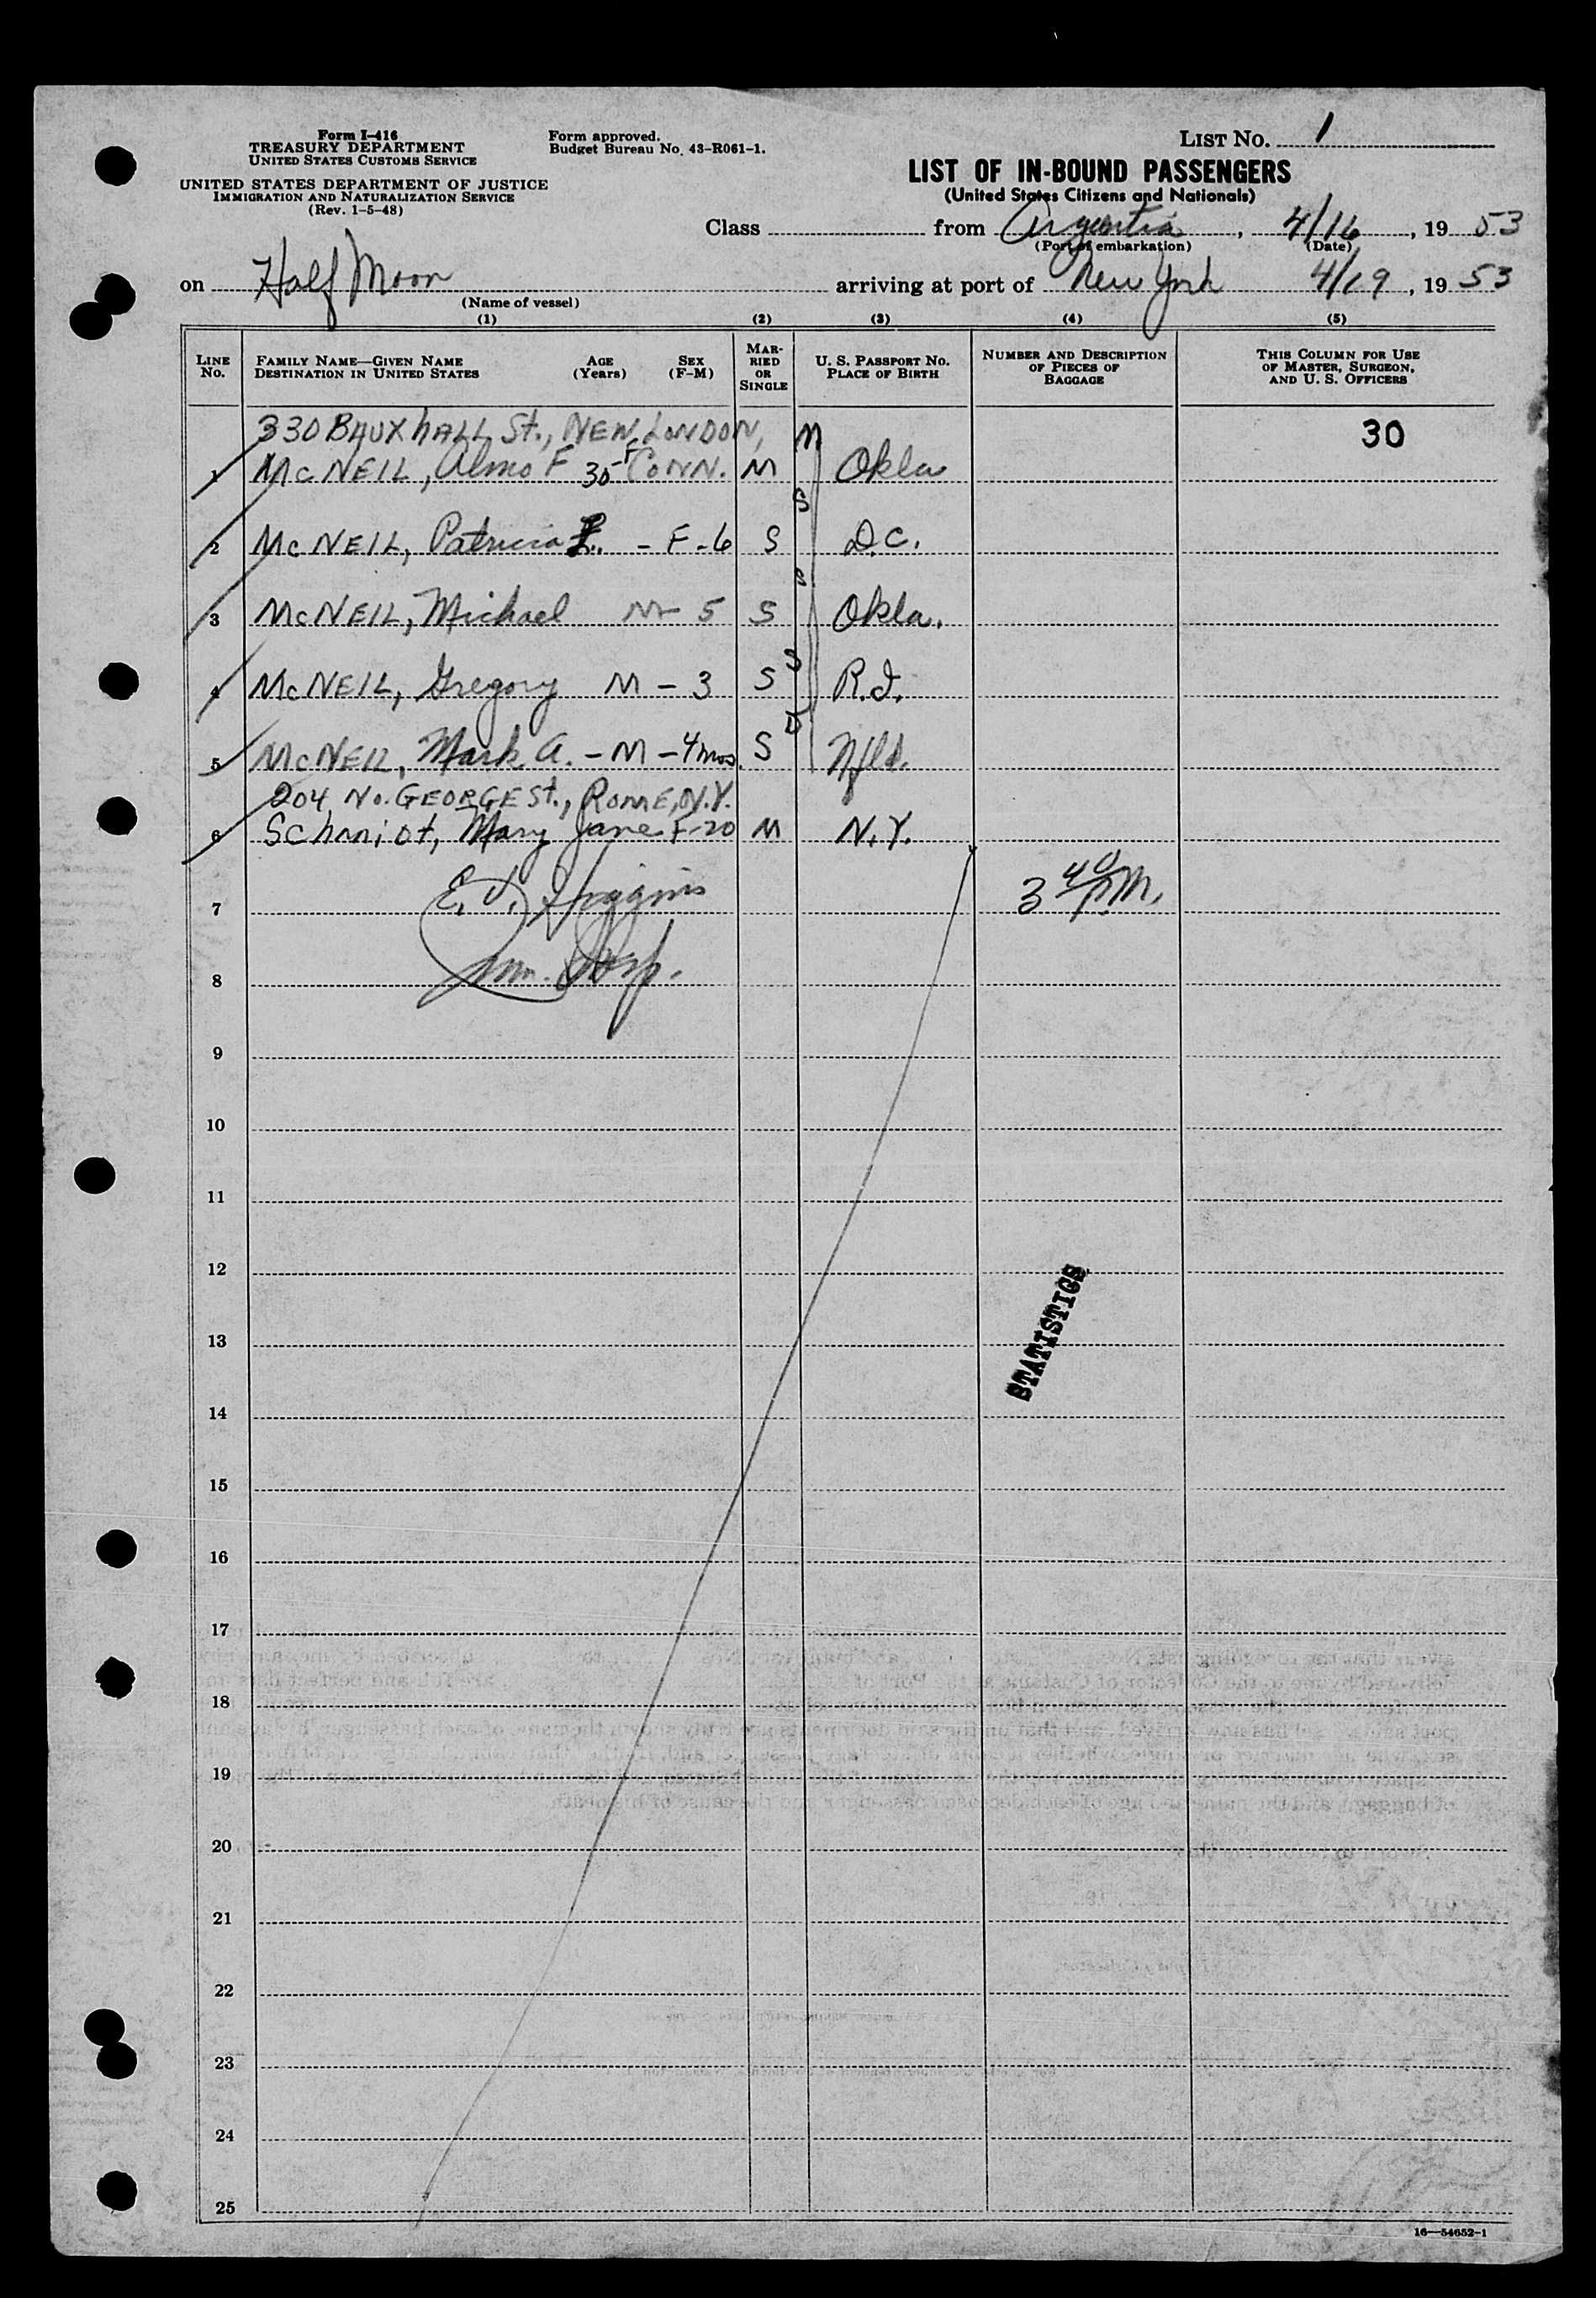 Form I-416
TREASURY DEPARTMENT
UNITED STATES CUSTOMS SERVICE
UNITED STATES DEPARTMENT OF JUSTICE
IMMIGRATION AND NATURALIZATION SERVICE
(Rev. 1-5-48)
Form approved.
Budget Bureau No. 43-R061-1.
LIST NO. 1
LIST OF IN-BOUND PASSENGERS
(United States Citizens and Nationals)
Class from Argentia, 4/16, 1953
(Port of embarkation) (Date)
on Half Moon arriving at port of New York 4/19, 1953
(Name of vessel)
(1) (2) (3) (4) (5)
LINE NO. FAMILY NAME—GIVEN NAME DESTINATION IN UNITED STATES AGE (Years) SEX (F-M) MARRIED OR SINGLE U. S. PASSPORT NO. PLACE OF BIRTH NUMBER AND DESCRIPTION OF PIECES OF BAGGAGE THIS COLUMN FOR USE OF MASTER, SURGEON, AND U. S. OFFICERS
330 BAUXhALL St., NEW LONDON, M 30
1 McNEIL, Almo F 30-F CONN. M Okla
S
2 McNEIL, Patricia - F-6 S D.C.
S
3 McNEIL, Michael M-5 S Okla.
S
4 McNEIL, Gregory M-3 S R.I.
5 McNEIL, Mark A. -M-4mos. S Nfld.
204 No. GEORGE St., ROME, N.Y.
6 Schmidt, Mary Jane F-20 M N.Y.
7 E. J. Higgins 3 40 P.M.
8 Imm. Insp.
9
10
11
12
STATISTICS
13
14
15
16
17
18
19
20
21
22
23
24
25
16—54652-1